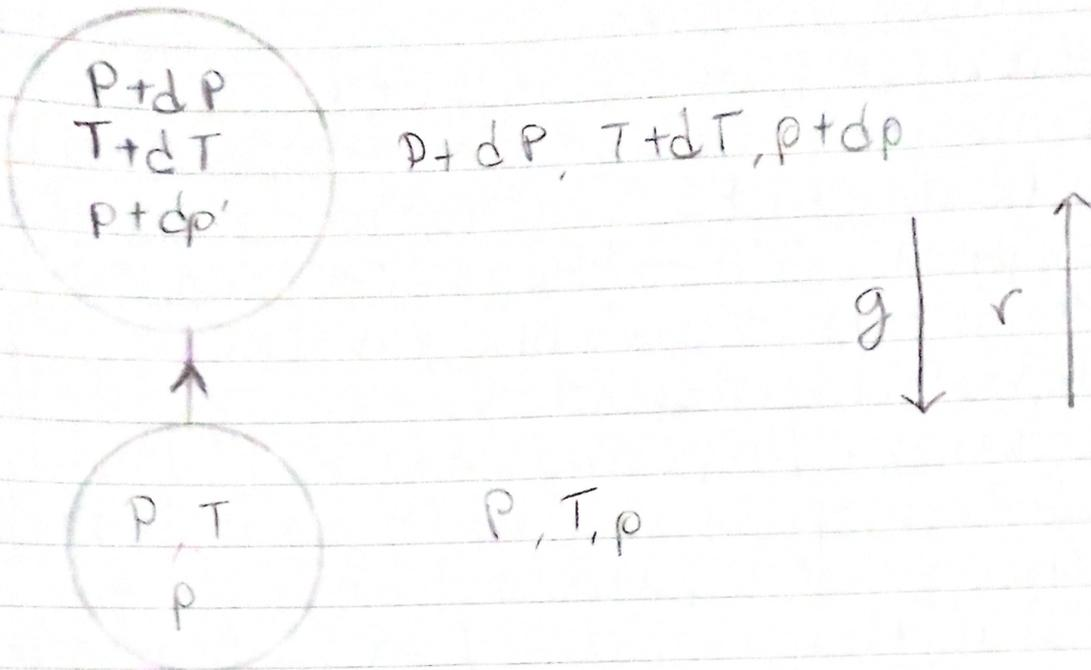 P+dP
T+dT
ρ+dρ'
P+dP, T+dT, ρ+dρ
g r
P, T
ρ
P, T, ρ